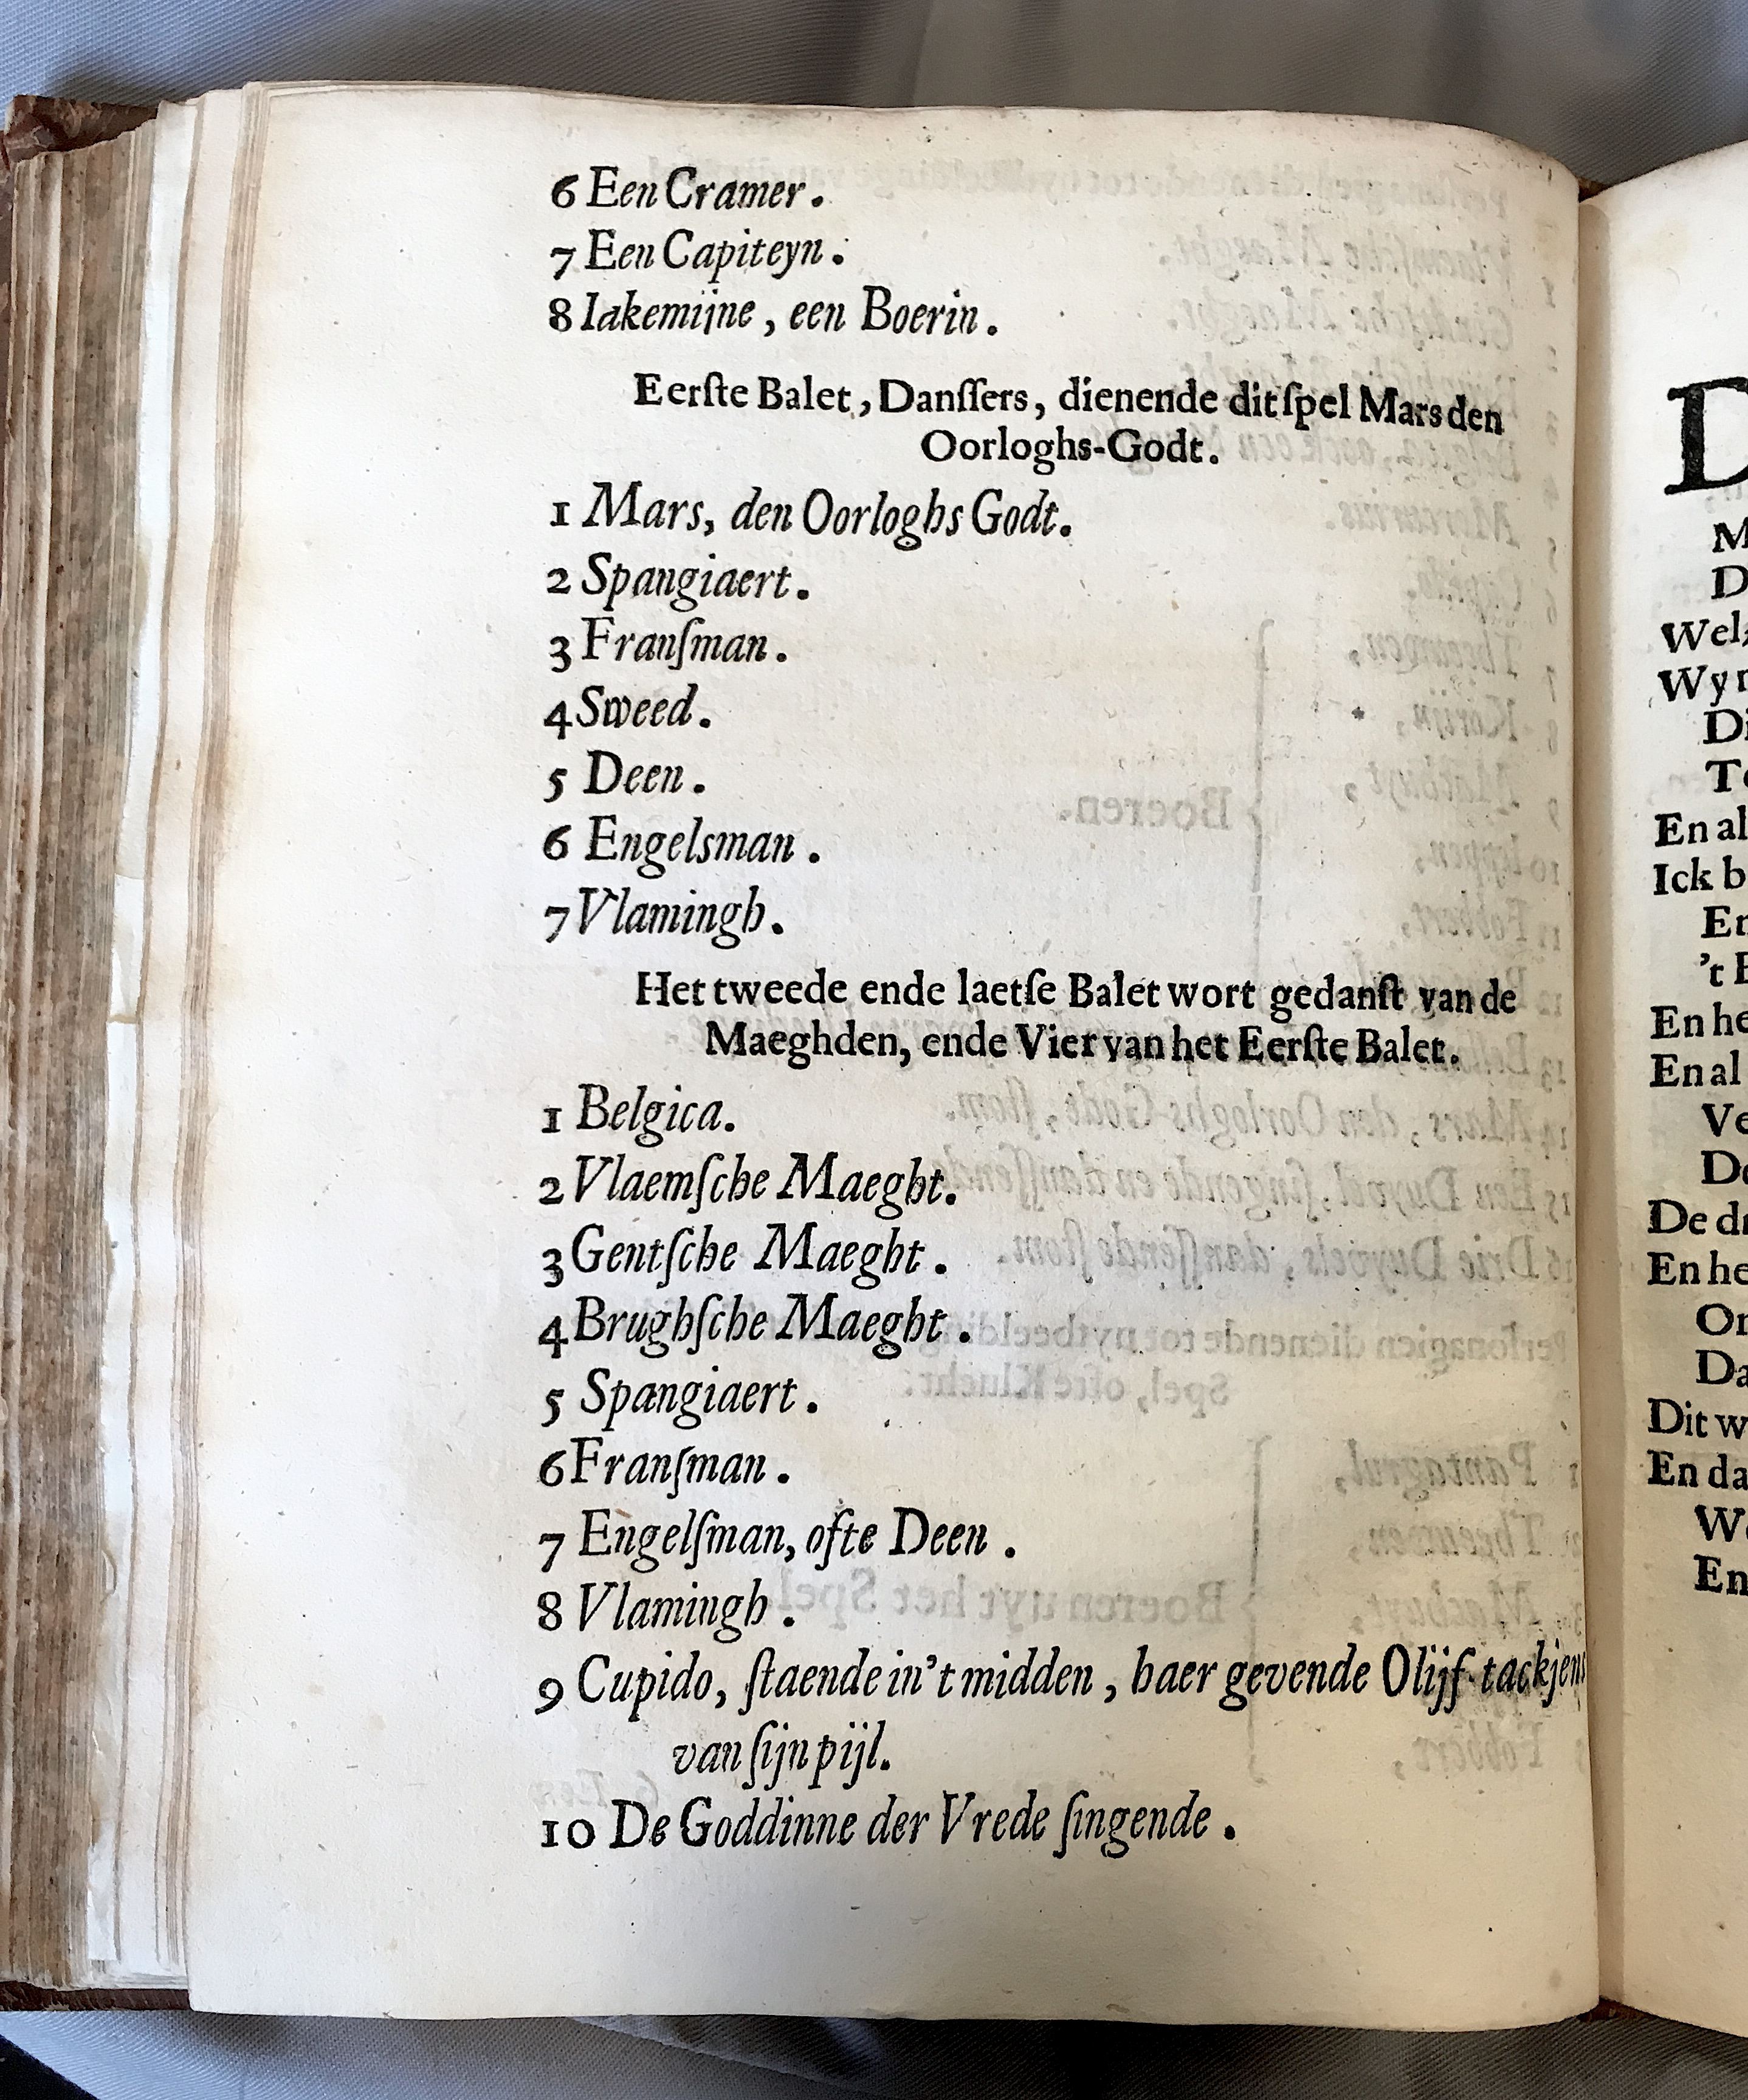 6 Een Cramer.
7 Een Capiteyn.
8 Iakemijne, een Boerin.
Eerſte Balet, Danſſers, dienende dit ſpel Mars den
Oorloghs-Godt.
1 Mars, den Oorloghs Godt.
2 Spangiaert.
3 Franſman.
4 Sweed.
5 Deen.
6 Engelsman.
7 Vlamingh.
Het tweede ende laetſe Balet wort gedanſt van de
Maeghden, ende Vier van het Eerſte Balet.
1 Belgica.
2 Vlaemſche Maeght.
3 Gentſche Maeght.
4 Brughſche Maeght.
5 Spangiaert.
6 Franſman.
7 Engelſman, ofte Deen.
8 Vlamingh.
9 Cupido, ſtaende in't midden, haer gevende Olijf-tackjens
van ſijn pijl.
10 De Goddinne der Vrede ſingende.
D
M
D
Wel
Wy
Di
To
En al
Ick b
En
't
En he
En al
Ve
De
De d
En he
On
Da
Dit w
En da
We
En